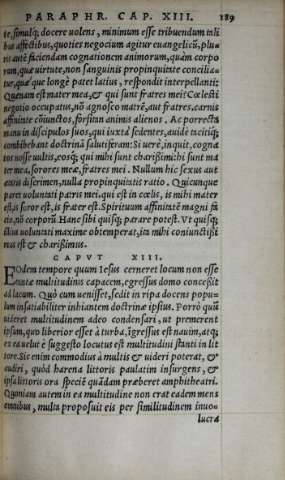 PARAPHR. CAP. XIII. 189
te, simulq; docere uolens, minimum esse tribuendum tali
bus affectibus, quoties negocium agitur euangelicũ, plu
ris autē faciendam cognationem animorum, quàm corpo
rum, quæ uirtute, non sanguinis propinquitate concilia
tur, quæ longè patet latius, respondit interpellanti:
Quænam est mater mea, & qui sunt fratres mei? Cœlesti
negotio occupatus, nõ agnosco matrē, aut fratres, carnis
affinitate cõiunctos, forsitan animis alienos. Ac porrecta
manu in discipulos suos, qui iuxtà sedentes, auidè tacitiq;
combibebant doctrinã salutiferam: Si uerè, inquit, cogna
tos nosse uultis, eosq; qui mihi sunt charißimi: hi sunt ma
ter mea, sorores meæ, fratres mei. Nullum hic sexus aut
ætatis discrimen, nulla propinquitatis ratio. Quicunque
paret uoluntati patris mei, qui est in cœlis, is mihi mater
est, is soror est, is frater est. Spirituum affinitatē magni fa
cio, nõ corporũ. Hanc sibi quisq; parare potest. Vt quisq;
illius uoluntati maximè obtemperat, ita mihi coniunctißi
mus est & charißimus.
CAPVT XIII.
EOdem tempore quum Iesus cerneret locum non esse
tantæ multitudinis capacem, egressus domo conceßit
ad lacum. Quò cum uenisset, sedit in ripa docens popu=
lum insatiabiliter inhiantem doctrinæ ipsius. Porrò quũ
uideret multitudinem adeo condensari, ut premerent
ipsum, quo liberior esset à turba, ĩgressus est nauim, atq;
ex ea uelut è suggesto locutus est multitudini stanti in lit
tore. Sic enim commodius à multis & uideri poterat, &
audiri, quòd harena littoris paulatim insurgens, &
ipsa littoris ora speciē quãdam præberet amphitheatri.
Quoniam autem in ea multitudine non erat eadem mens
omnibus, multa proposuit eis per similitudinem inuo=
lucra